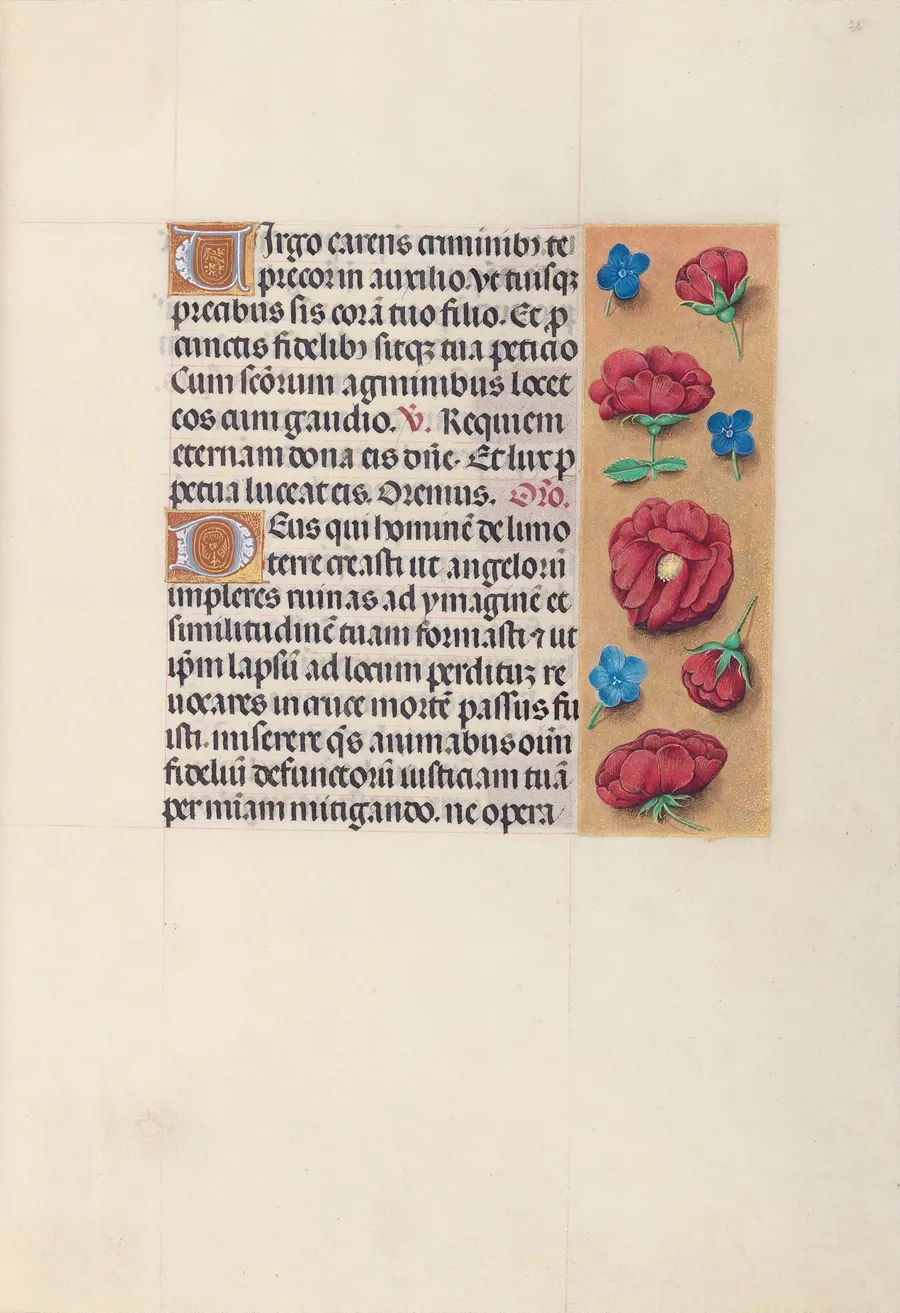 Virgo carens criminibꝫ te
precor in auxilio. Vt tuisqꝫ
precibus sis corā tuo filio. Et ꝓ
cunctis fidelibꝫ sitqꝫ tua peticio
Cum scōrum agminibus locet
eos cum gaudio. V̄. Requiem
eternam dona eis dn̄e. Et lux ꝑ
petua luceat eis. Oremus. Oro̅.
Deus qui hominē de limo
terre creasti ut angeloꝝ
impleres ruinas ad ymaginē et
similitudinē tuam formasti ⁊ ut
ip̄m lapsū ad locum perdituꝫ re
uocares in cruce mortē passus fu
isti. miserere q̄s animabus oīm
fideliū defunctorū iusticiam tuā
per mīam mitigando. ne opera